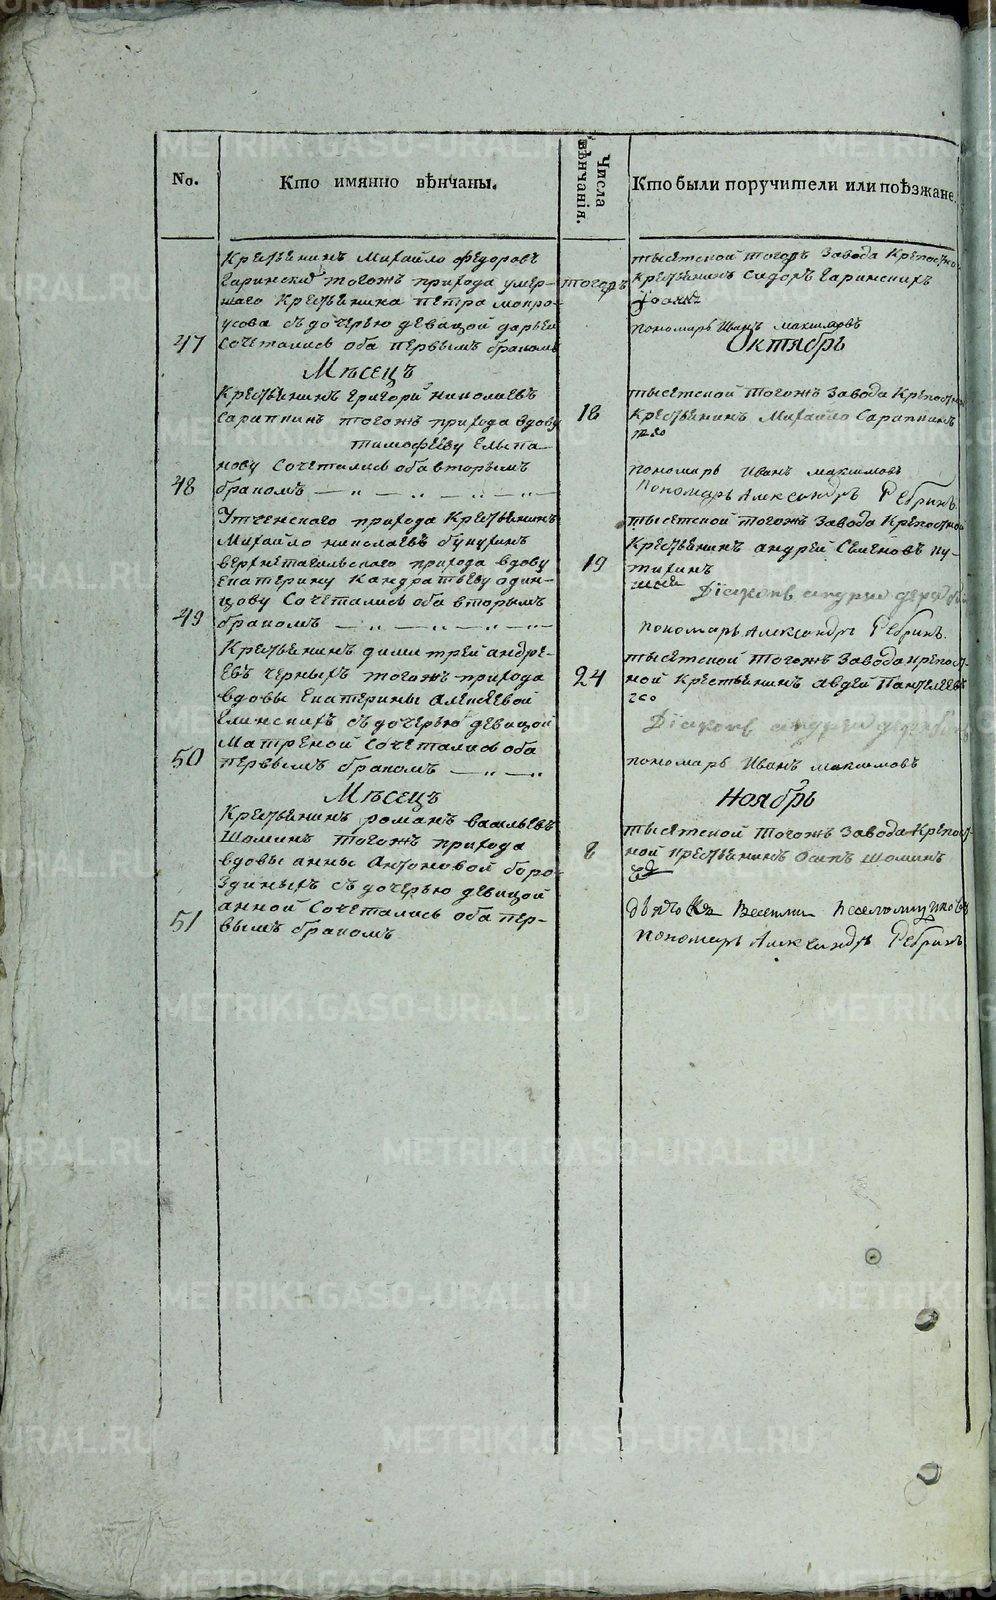 No.
Кто имянно вѣнчаны.
Числа вѣнчанія.
Кто были поручители или поѣзжане.
Крестьенинъ Михайло Федоровъ
Гаринской тогожъ прихода умер-
шаго Крестьенина Петра Мокро-
усова съ дочерью девицой дарьей
47 Сочетались оба первымъ бракомъ
тогожъ
тысятской тогожъ Завода Крепостно
Крестьенинъ Сидоръ Гаринскихъ
пономарь Иванъ максимовъ
Мѣсецъ
Октябрь
Крестьенинъ Григорий Николаевъ
Сарапкинъ тогожъ прихода вдову
тимофееву Елыпа-
нову Сочетались оба вторымъ
48 бракомъ
18
тысятской тогожъ Завода Крепостной
Крестьенинъ Михайло Сарапкинъ
пономарь Иванъ максимовъ
Пономарь Александръ Ребринъ
прихода Крестьенинъ
Михайло николаевъ
верхнетагильскаго прихода вдову
Екатерину Кандратьеву один-
цову Сочетались оба вторымъ
49 бракомъ
19
тысятской тогожъ Завода Крепостной
Крестьенинъ андрей Семеновъ пу-
тихинъ
Діаконъ андрей
пономарь Александръ Ребринъ.
Крестьенинъ димитрей андре-
евъ черныхъ тогожъ прихода
вдовы Екатерины Алексеевой
Елинскихъ съ дочерью девицой
Матреной Сочетались оба
50 первымъ бракомъ
24
тысятской тогожъ Завода крепост-
ной Крестьенинъ авдей Пантелеевъ
Діаконъ андрей
пономарь Иванъ максимовъ
Мѣсецъ
Ноябрь
Крестьенинъ романъ васильевъ
Шоминъ тогожъ прихода
вдовы анны Антоновой боро-
здиныхъ съ дочерью девицой
анной Сочетались оба пер-
51 вымъ бракомъ
8
тысятской тогожъ Завода Крепост-
ной крестьенинъ Осипъ Шоминъ
пономарь Александръ Ребринъ
METRIKI.GASO-URAL.RU